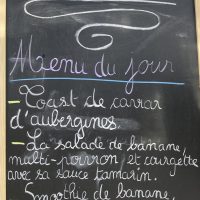 Menu du jour
- Toast de caviar
d'aubergines.
- La salade de banane,
multi-poivron et courgette
avec sa sauce tamarin.
- Smoothie de banane,